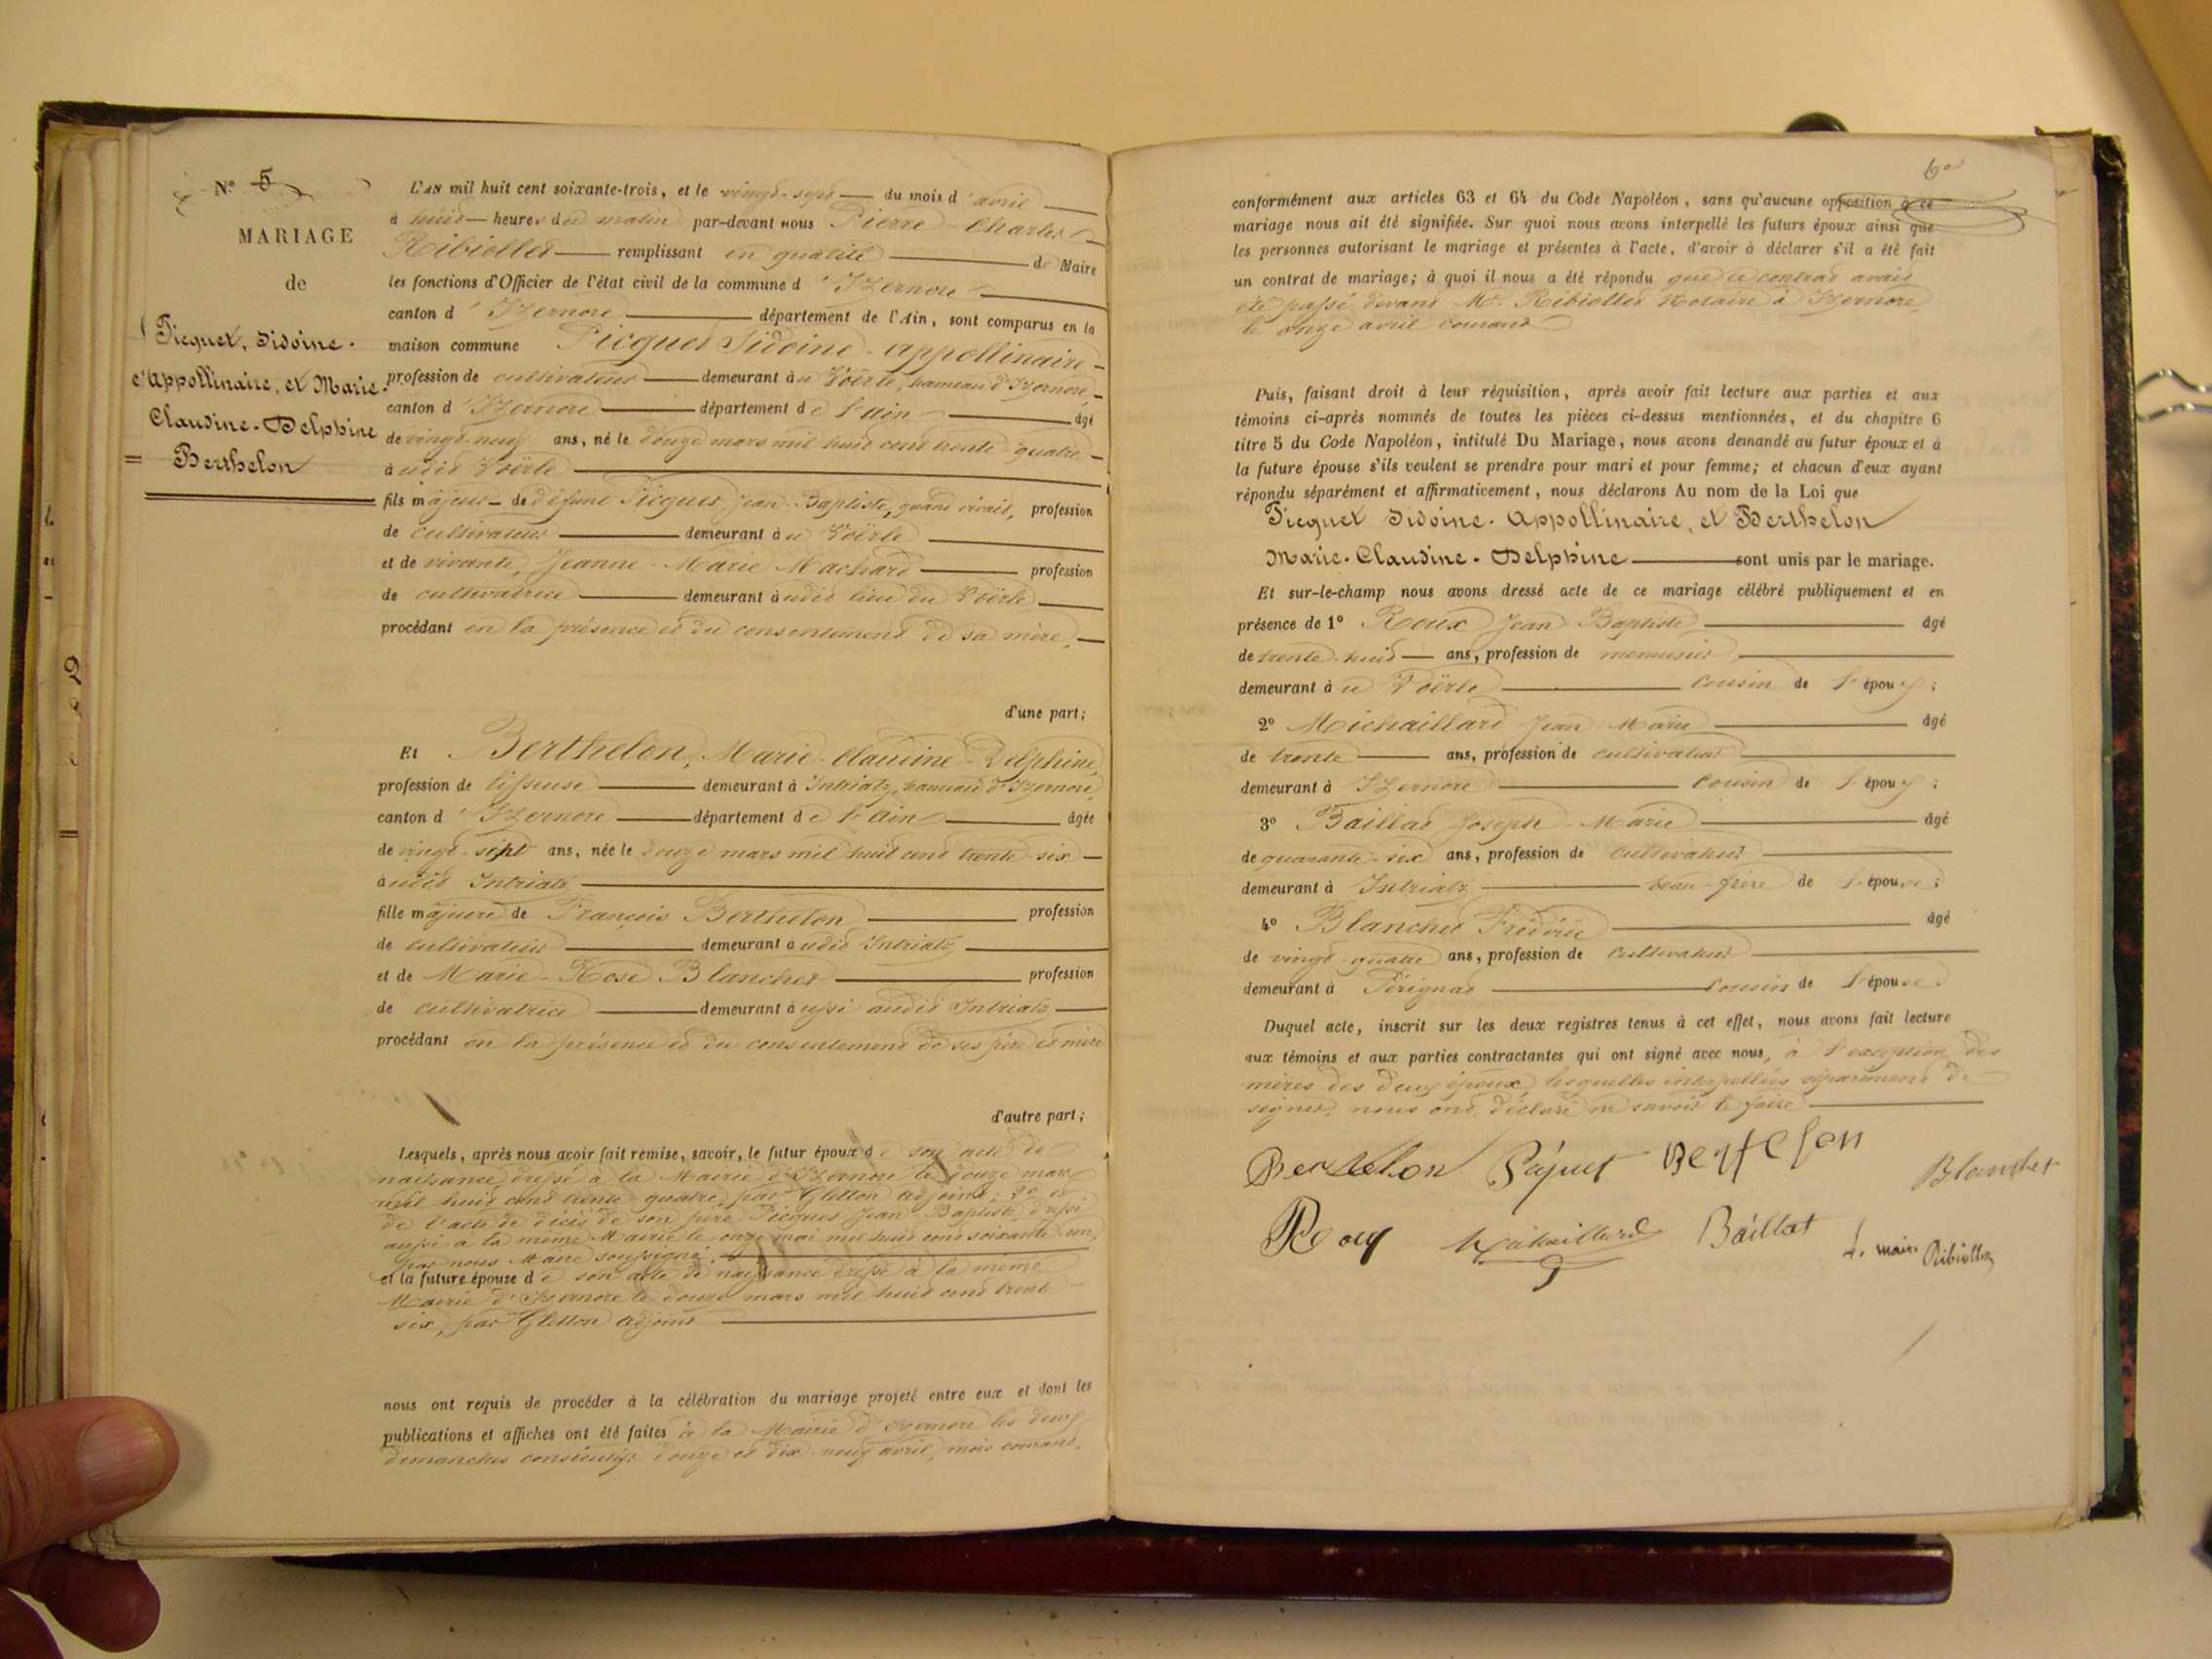 N° 5
MARIAGE
de
Picquet, Sidoine-
Appollinaire, et Marie-
Claudine-Delphine
Berthelon
L'AN mil huit cent soixante-trois, et le vingt-sept du mois d'avril
à huit heures du matin par-devant nous Pierre-Charles
Ribiollet remplissant en qualité de Maire
les fonctions d'Officier de l'état civil de la commune d'Izernore
canton d'Izernore département de l'Ain, sont comparus en la
maison commune Picquet Sidoine-appollinaire
profession de cultivateur demeurant au Voërle, hameau d'Izernore,
canton d'Izernore département de l'ain âgé
de vingt-neuf ans, né le douze mars mil huit cent trente quatre
audit Voërle
fils majeur de défunt Picquet Jean-Baptiste, quand vivait, profession
de cultivateur demeurant au Voërle
et de vivante, Jeanne-Marie Machard profession
de cultivatrice demeurant audit lieu du Voërle
procédant en la présence et du consentement de sa mère,
d'une part;
Et Berthelon, Marie-Claudine-Delphine,
profession de tisseuse demeurant à Intriatz, hameau d'Izernore,
canton d'Izernore département de l'Ain âgée
de vingt-sept ans, née le douze mars mil huit cent trente-six
audit Intriatz
fille majeure de François Berthelon profession
de cultivateur demeurant audit Intriatz
et de Marie-Rose Blanchet profession
de cultivatrice demeurant aussi audit Intriatz
procédant en la présence et du consentement de ses père et mère
d'autre part;
Lesquels, après nous avoir fait remise, savoir, le futur époux de son acte de
naissance dressé à la Mairie d'Izernore le douze mars
mil huit cent trente quatre, par Gletton adjoint; 2° et
de l'acte de décès de son père Picquet Jean-Baptiste, dressé
aussi à la même Mairie le onze mai mil huit cent soixante-un,
par nous Maire soussigné.
et la future épouse de son acte de naissance dressé à la même
Mairie d'Izernore le douze mars mil huit cent trente
six, par Gletton adjoint
nous ont requis de procéder à la célébration du mariage projeté entre eux et dont les
publications et affiches ont été faites à la Mairie d'Izernore les deux
dimanches consécutifs douze et dix-neuf avril, mois courant,
conformément aux articles 63 et 64 du Code Napoléon, sans qu'aucune opposition à ce
mariage nous ait été signifiée. Sur quoi nous avons interpellé les futurs époux ainsi que
les personnes autorisant le mariage et présentes à l'acte, d'avoir à déclarer s'il a été fait
un contrat de mariage; à quoi il nous a été répondu que ce contrat avait
été passé devant Me. Ribiollet Notaire à Izernore,
le onze avril courant
Puis, faisant droit à leur réquisition, après avoir fait lecture aux parties et aux
témoins ci-après nommés de toutes les pièces ci-dessus mentionnées, et du chapitre 6
titre 5 du Code Napoléon, intitulé Du Mariage, nous avons demandé au futur époux et à
la future épouse s'ils veulent se prendre pour mari et pour femme; et chacun d'eux ayant
répondu séparément et affirmativement, nous déclarons Au nom de la Loi que
Picquet Sidoine-Appollinaire, et Berthelon
Marie-Claudine-Delphine sont unis par le mariage.
Et sur-le-champ nous avons dressé acte de ce mariage célébré publiquement et en
présence de 1° Roux Jean-Baptiste âgé
de trente-huit ans, profession de menuisier
demeurant au Voërle cousin de l'époux;
2° Michaillard Jean-Marie âgé
de trente ans, profession de cultivateur
demeurant à Izernore cousin de l'époux;
3° Baillat Joseph-Marie âgé
de quarante-six ans, profession de cultivateur
demeurant à Intriatz beau-frère de l'épouse;
4° Blanchet Frédéric âgé
de vingt-quatre ans, profession de cultivateur
demeurant à Pérignat cousin de l'épouse.
Duquel acte, inscrit sur les deux registres tenus à cet effet, nous avons fait lecture
aux témoins et aux parties contractantes qui ont signé avec nous, à l'exception des
mères des deux époux, lesquelles interpellées séparément de
signer, nous ont déclaré ne savoir le faire
Berthelon Piquet Bertelon Blanchet
Roux Michaillard Baillat Le maire Ribiollet